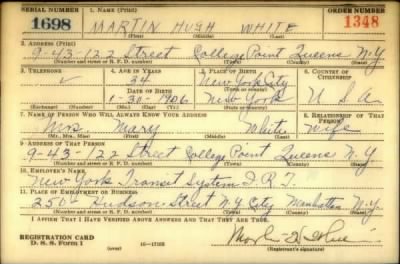 SERIAL NUMBER 1. NAME (Print) ORDER NUMBER
1698 MARTIN HUGH WHITE 1348
(First) (Middle) (Last)
2. ADDRESS (Print)
9-43-122 Street College Point Queens N.Y.
(Number and street or R. F. D. number) (Town) (County) (State)
3. TELEPHONE 4. AGE IN YEARS 5. PLACE OF BIRTH 6. COUNTRY OF CITIZENSHIP
34 New York City
DATE OF BIRTH (Town or county)
1-30-1906 New York U.S.A.
(Exchange) (Number) (Mo.) (Day) (Yr.) (State or country)
7. NAME OF PERSON WHO WILL ALWAYS KNOW YOUR ADDRESS 8. RELATIONSHIP OF THAT PERSON
Mrs Mary White Wife
(Mr., Mrs., Miss) (First) (Middle) (Last)
9. ADDRESS OF THAT PERSON
9-43-122 Street College Point Queens N.Y.
(Number and street or R. F. D. number) (Town) (County) (State)
10. EMPLOYER'S NAME
New York Transit System I.R.T.
11. PLACE OF EMPLOYMENT OR BUSINESS
250 Hudson Street N.Y. City Manhattan N.Y.
(Number and street or R. F. D. number) (Town) (County) (State)
I AFFIRM THAT I HAVE VERIFIED ABOVE ANSWERS AND THAT THEY ARE TRUE.
REGISTRATION CARD
D. S. S. Form 1 (over) 16-17105 (Registrant's signature)